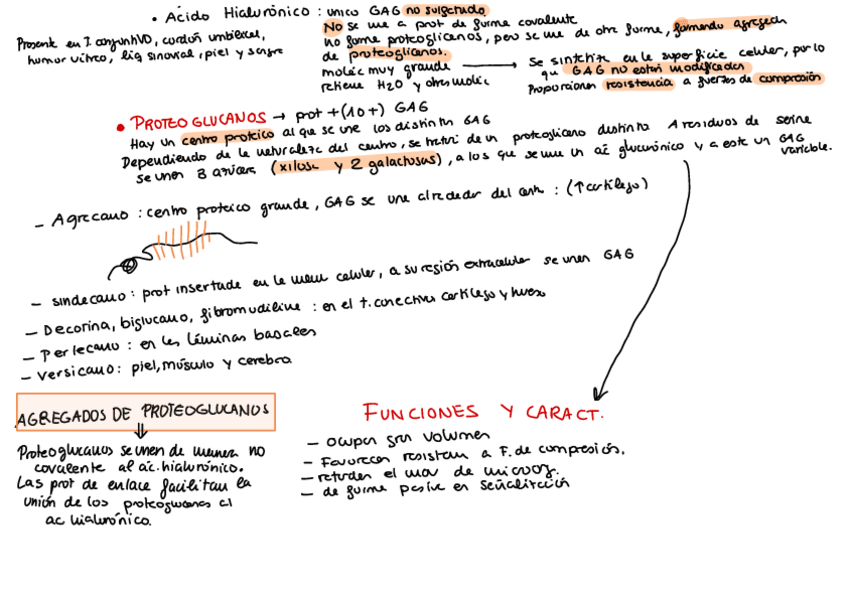 • Ácido Hialurónico : único GAG no sulfatado
No se une a prot de forma covalente
no forma proteoglicanos, pero se une de otra forma, formando agregados
de proteoglicanos.
molec muy grande
retiene H2O y otras molec
Presente en T. conjuntivo, cordón umbilical,
humor vítreo, liq sinovial, piel y sangre
Se sintetiza en la superficie celular, por lo
que GAG no están modificados
Proporcionan resistencia a fuerzas de compresión
• PROTEOGLUCANOS → prot + (10+) GAG
Hay un centro proteico al que se une los distintos GAG
Dependiendo de la naturaleza del centro, se tratará de un proteoglicano distinto A residuos de serina
se unen 3 azúcares (xilosa y 2 galactosas), a los que se une un ác glucurónico y a este un GAG
variable.
- Agrecano : centro proteico grande, GAG se une alrededor del centro : (↑cartílago)
- sindecano : prot insertada en la mem celular, a su región extracelular se unen GAG
- Decorina, biglucano, fibromudilina : en el t. conectivo cartílago y hueso
- Perlecano : en las láminas basales
- versicano : piel, músculo y cerebro.
AGREGADOS DE PROTEOGLUCANOS
⇓
Proteoglucanos se unen de manera no
covalente al ác. hialurónico.
Las prot de enlace facilitan la
unión de los proteoglucanos al
ac hialurónico.
FUNCIONES Y CARACT.
- ocupan gran volumen
- Favorecen resistan a F. de compresión.
- retardan el mov de microorg.
- de forma pasiva en señalización